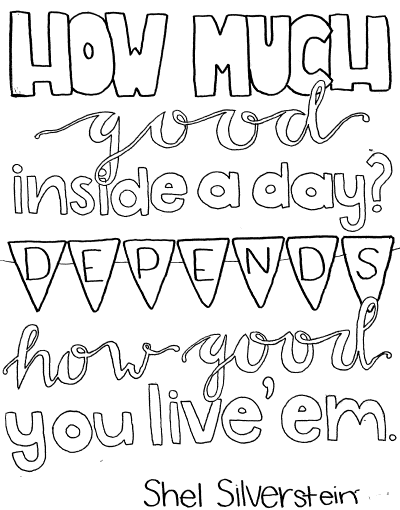 HOW MUCH
good
inside a day?
DEPENDS
how good
you live 'em.
Shel Silverstein